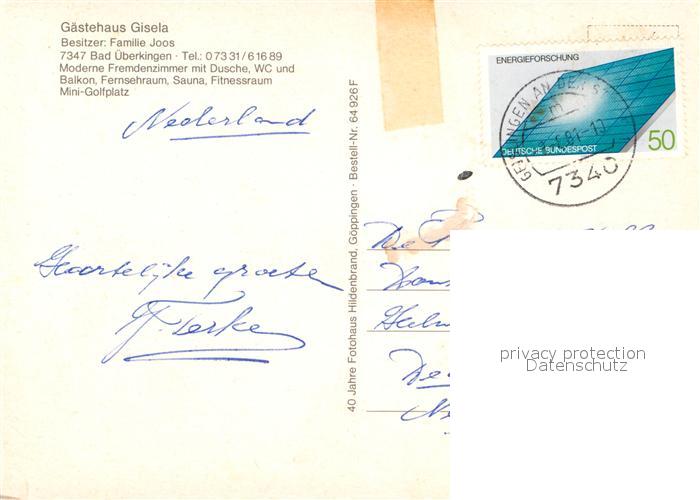 Gästehaus Gisela
Besitzer: Familie Joos
7347 Bad Überkingen · Tel.: 0 73 31/6 16 89
Moderne Fremdenzimmer mit Dusche, WC und
Balkon, Fernsehraum, Sauna, Fitnessraum
Mini-Golfplatz
Nederland
Hartelijke groeten
40 Jahre Fotohaus Hildenbrand, Göppingen · Bestell-Nr. 64 926 F
ENERGIEFORSCHUNG
DEUTSCHE BUNDESPOST
50
AN DER
7340
privacy protection
Datenschutz